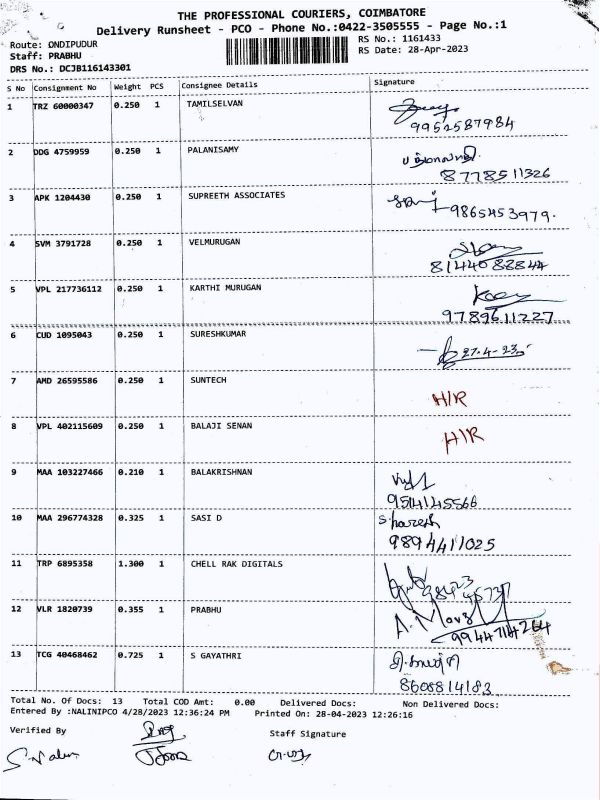 THE PROFESSIONAL COURIERS, COIMBATORE
Delivery Runsheet - PCO - Phone No.:0422-3505555 - Page No.:1
Route: ONDIPUDUR RS No.: 1161433
Staff: PRABHU RS Date: 28-Apr-2023
DRS No.: DCJB116143301
S No Consignment No Weight PCS Consignee Details Signature
1 TRZ 60000347 0.250 1 TAMILSELVAN
9952587984
2 DDG 4759959 0.250 1 PALANISAMY
8778511326
3 APK 1204430 0.250 1 SUPREETH ASSOCIATES
9865453979.
4 SVM 3791728 0.250 1 VELMURUGAN
8144088844
5 VPL 217736112 0.250 1 KARTHI MURUGAN
9789611227
6 CUD 1095043 0.250 1 SURESHKUMAR
27.4-23
7 AMD 26595586 0.250 1 SUNTECH
H/R
8 VPL 402115609 0.250 1 BALAJI SENAN
H/R
9 MAA 103227466 0.210 1 BALAKRISHNAN
9514145566
10 MAA 296774328 0.325 1 SASI D
9894411025
11 TRP 6895358 1.300 1 CHELL RAK DIGITALS
12 VLR 1820739 0.355 1 PRABHU
13 TCG 40468462 0.725 1 S GAYATHRI
8608814183
Total No. Of Docs: 13 Total COD Amt: 0.00 Delivered Docs: Non Delivered Docs:
Entered By :NALINIPCO 4/28/2023 12:36:24 PM Printed On: 28-04-2023 12:26:16
Verified By Staff Signature